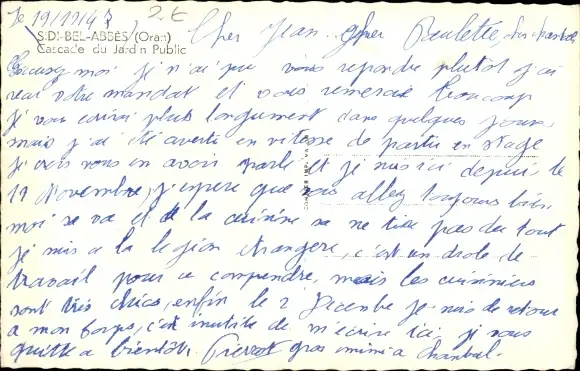 le 19/11/47 2€
SIDI-BEL-ABBÈS (Oran)
Cascade du Jardin Public
Cher Jean, cher Paulette, cher chantal
Excusez moi je n'ai pu vous repondre plutot j'ai
recu votre mandat et vous remercie beaucoup
je vous ecrirai plus longument dans quelques jours,
mais j'ai été averti en vitesse de partir en stage
je crois vous en avoir parlé et je suis ici depuis le
11 Novembre, j'espere que vous allez toujours bien
moi sa va et de la cuisine sa ne tire pas du tout
je suis a la legion etrangere, c'est un drole de
travail pour a comprendre, mais les cuisiniers
sont très chics, enfin le 2 Decembre je suis de retour
a mon corps, c'est inutile de m'ecrire ici je vous
quitte a bientôt. Pierrot gros mimi a chantal.